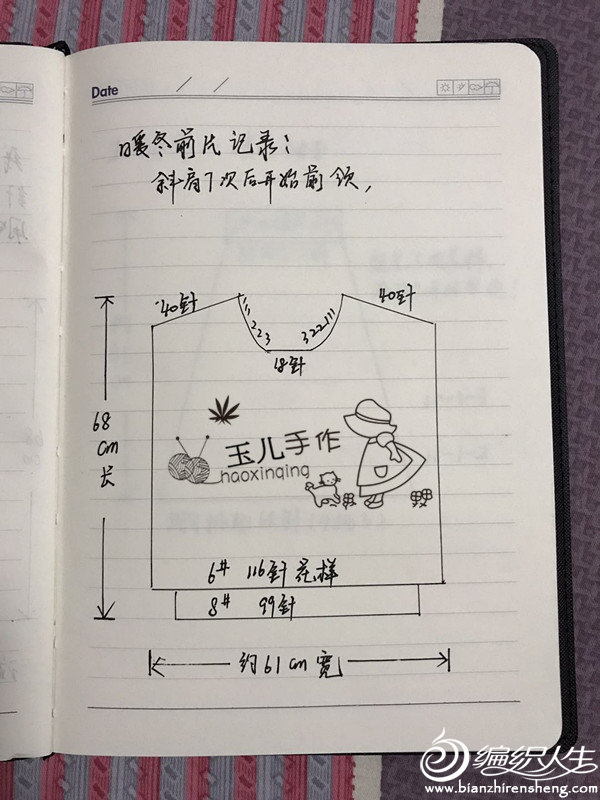 Date / /
暖冬前片记录:
斜肩7次后开始前领,
40针
40针
111
223
322111
18针
68
cm
长
玉儿手作
haoxinqing
6# 116针花样
8# 99针
约61cm宽
编织人生
www.bianzhirensheng.com